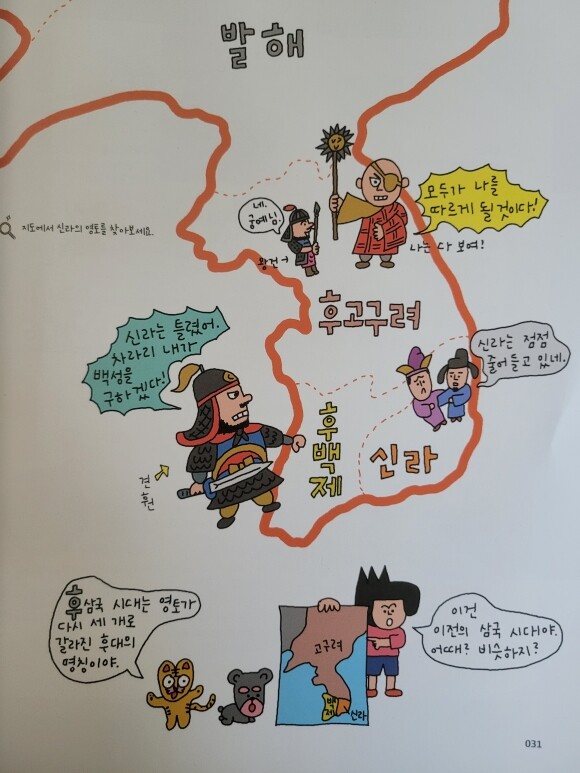 발해
네.
궁예님!
모두가 나를
따르게 될 것이다!
지도에서 신라의 영토를 찾아보세요.
왕건→
나는 다 보여!
후고구려
신라는 틀렸어.
차라리 내가
백성을
구하겠다!
신라는 점점
줄어들고 있네.
후백제
신라
견훤
후삼국 시대는 영토가
다시 세 개로
갈라진 후대의
명칭이야.
이건
이전의 삼국 시대야.
어때? 비슷하지?
고구려
백제
신라
031